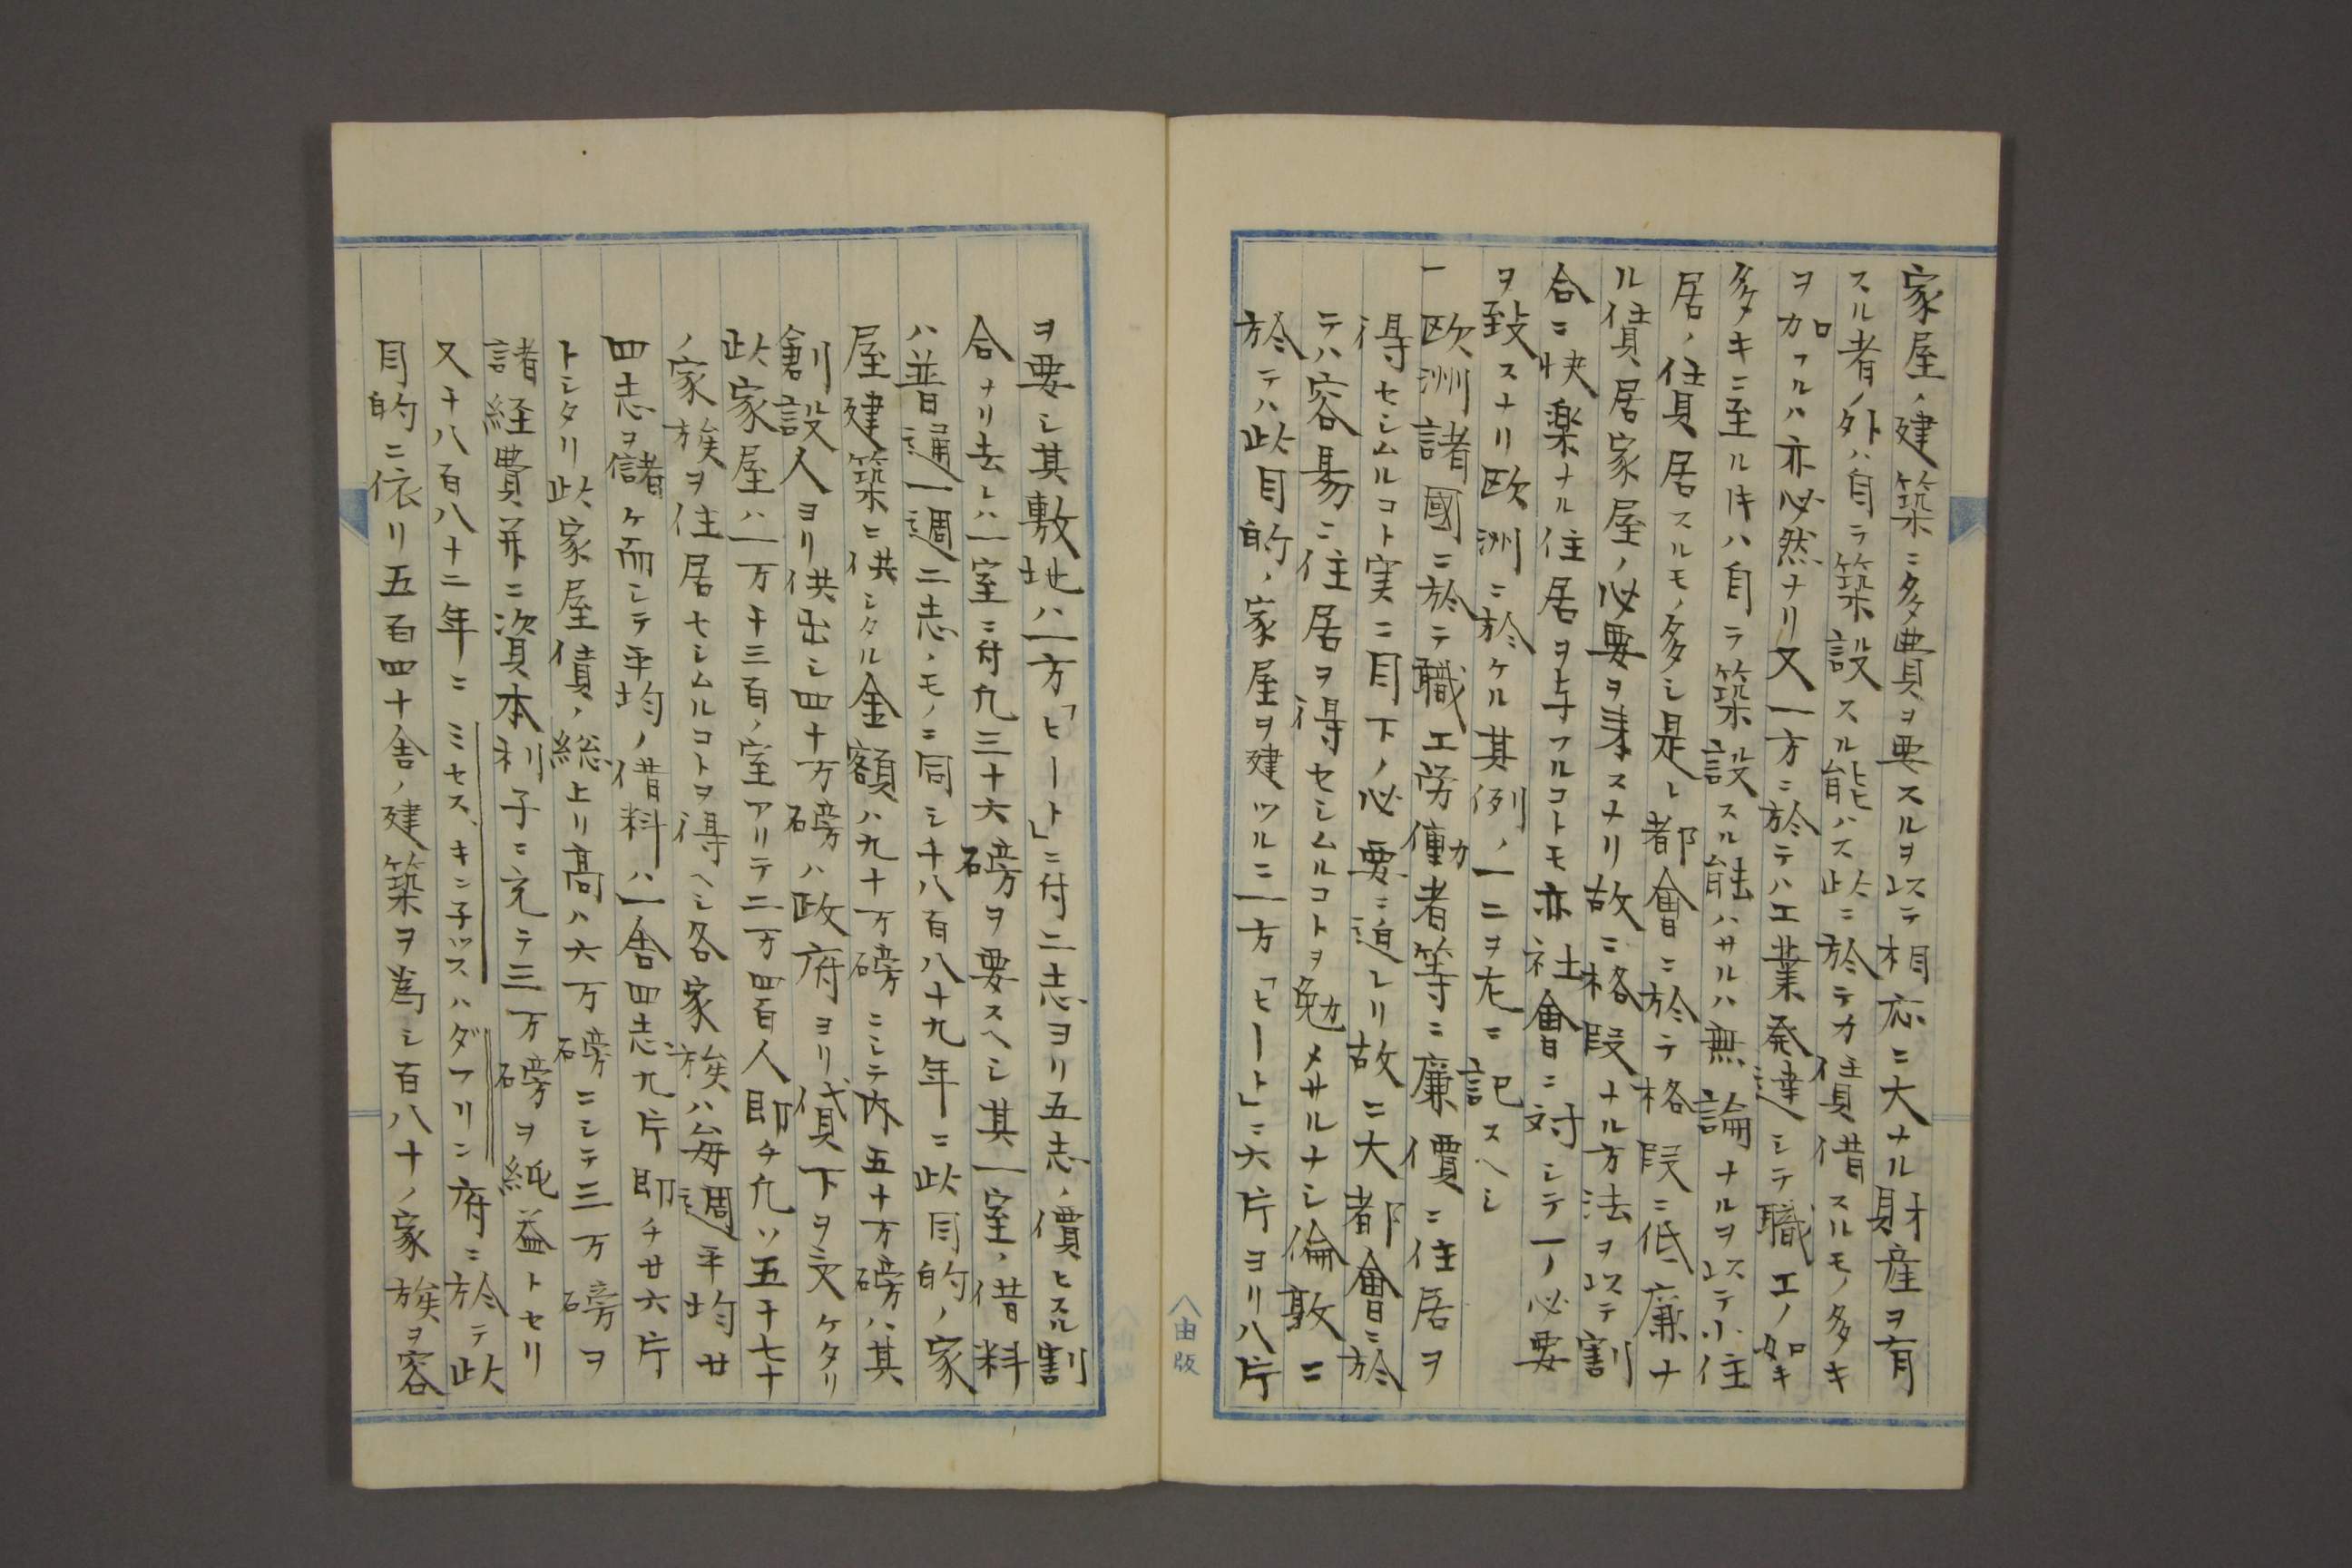 家屋ノ建築ニ多費ヲ要スルヲ以テ相応ニ大ナル財産ヲ有
スル者ノ外ハ自ラ築設スル能ハス此ニ於テカ賃借スルモノ多キ
ヲ加フルハ亦必然ナリ又一方ニ於テハ工業発達シテ職工ノ如キ
多キニ至ルキハ自ラ築設スル能ハサルハ無論ナルヲ以テ小住
居ノ賃居スルモノ多シ是レ都會ニ於テ格段ニ低廉ナ
ル賃居家屋ノ必要ヲ来スナリ故ニ格段ナル方法ヲ以テ割
合ニ快楽ナル住居ヲ与フルコトモ亦社會ニ対シテ一ノ必要
ヲ致スナリ欧洲ニ於ケル其例ノ一二ヲ左ニ記スヘシ
一欧洲諸國ニ於テ職工労働者等ニ廉價ニ住居ヲ
得セシムルコト実ニ目下ノ必要ニ迫レリ故ニ大都會ニ於
テハ容易ニ住居ヲ得セシムルコトヲ勉メサルナシ倫敦ニ
於テハ此目的ノ家屋ヲ建ツルニ一方「ヒート」ニ六片ヨリ八片
ヲ要シ其敷地ハ一方「ヒート」ニ付二志ヨリ五志ノ價ヒスル割
合ナリ去レハ一室ニ付凡三十六磅ヲ要スヘシ其一室ノ借料
ハ普通一週二志ノモノニ同シ千八百八十九年ニ此目的ノ家
屋建築ニ供シタル金額ハ九十万磅ニシテ内五十万磅ハ其
創設人ヨリ供出シ四十万磅ハ政府ヨリ貸下ヲ受ケタリ
此家屋ハ一万千三百ノ室アリテ二万四百人即チ凡ソ五千七十
ノ家族ヲ住居セシムルコトヲ得ヘシ各家族ハ毎週平均廿
四志ヲ儲ケ而シテ平均ノ借料ハ一舎四志九片即チ廿六片
トシタリ此家屋債ノ総上リ高ハ六万磅ニシテ三万磅ヲ
諸経費并ニ資本利子ニ充テ三万磅ヲ純益トセリ
又千八百八十二年ニミセス、キン子ツスハダフリン府ニ於テ此
目的ニ依リ五百四十舎ノ建築ヲ為シ百八十ノ家族ヲ容
由版